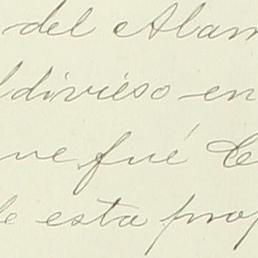 del Alam
ldivieso en
ue fué C
de esta prop